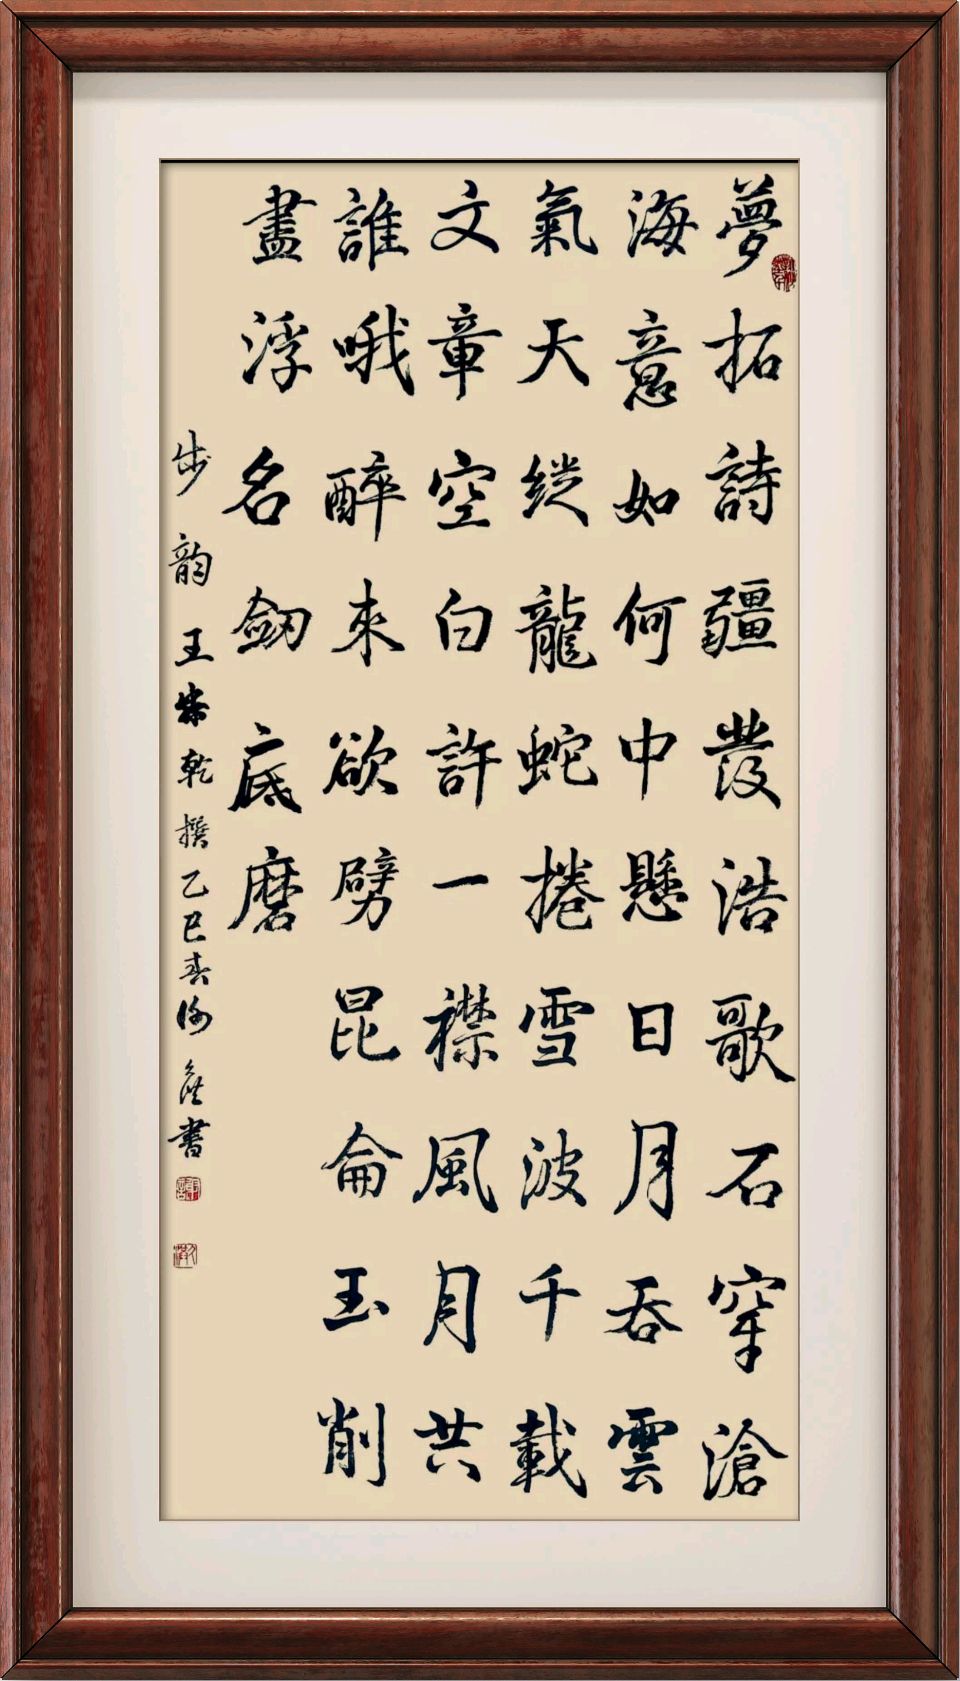 夢拓詩疆發浩歌石穿滄
海意如何中懸日月吞雲
氣天縱龍蛇捲雪波千載
文章空白許一襟風月共
誰哦醉來欲劈昆侖玉削
盡浮名劒底磨
步韵王崇乾撰乙巳春 書